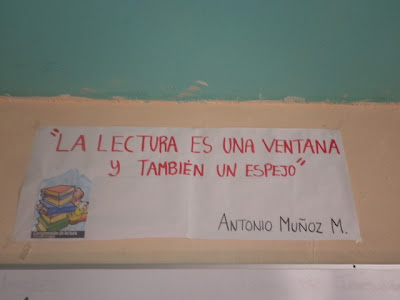 "LA LECTURA ES UNA VENTANA
Y TAMBIÉN UN ESPEJO"
ANTONIO MUÑOZ M.